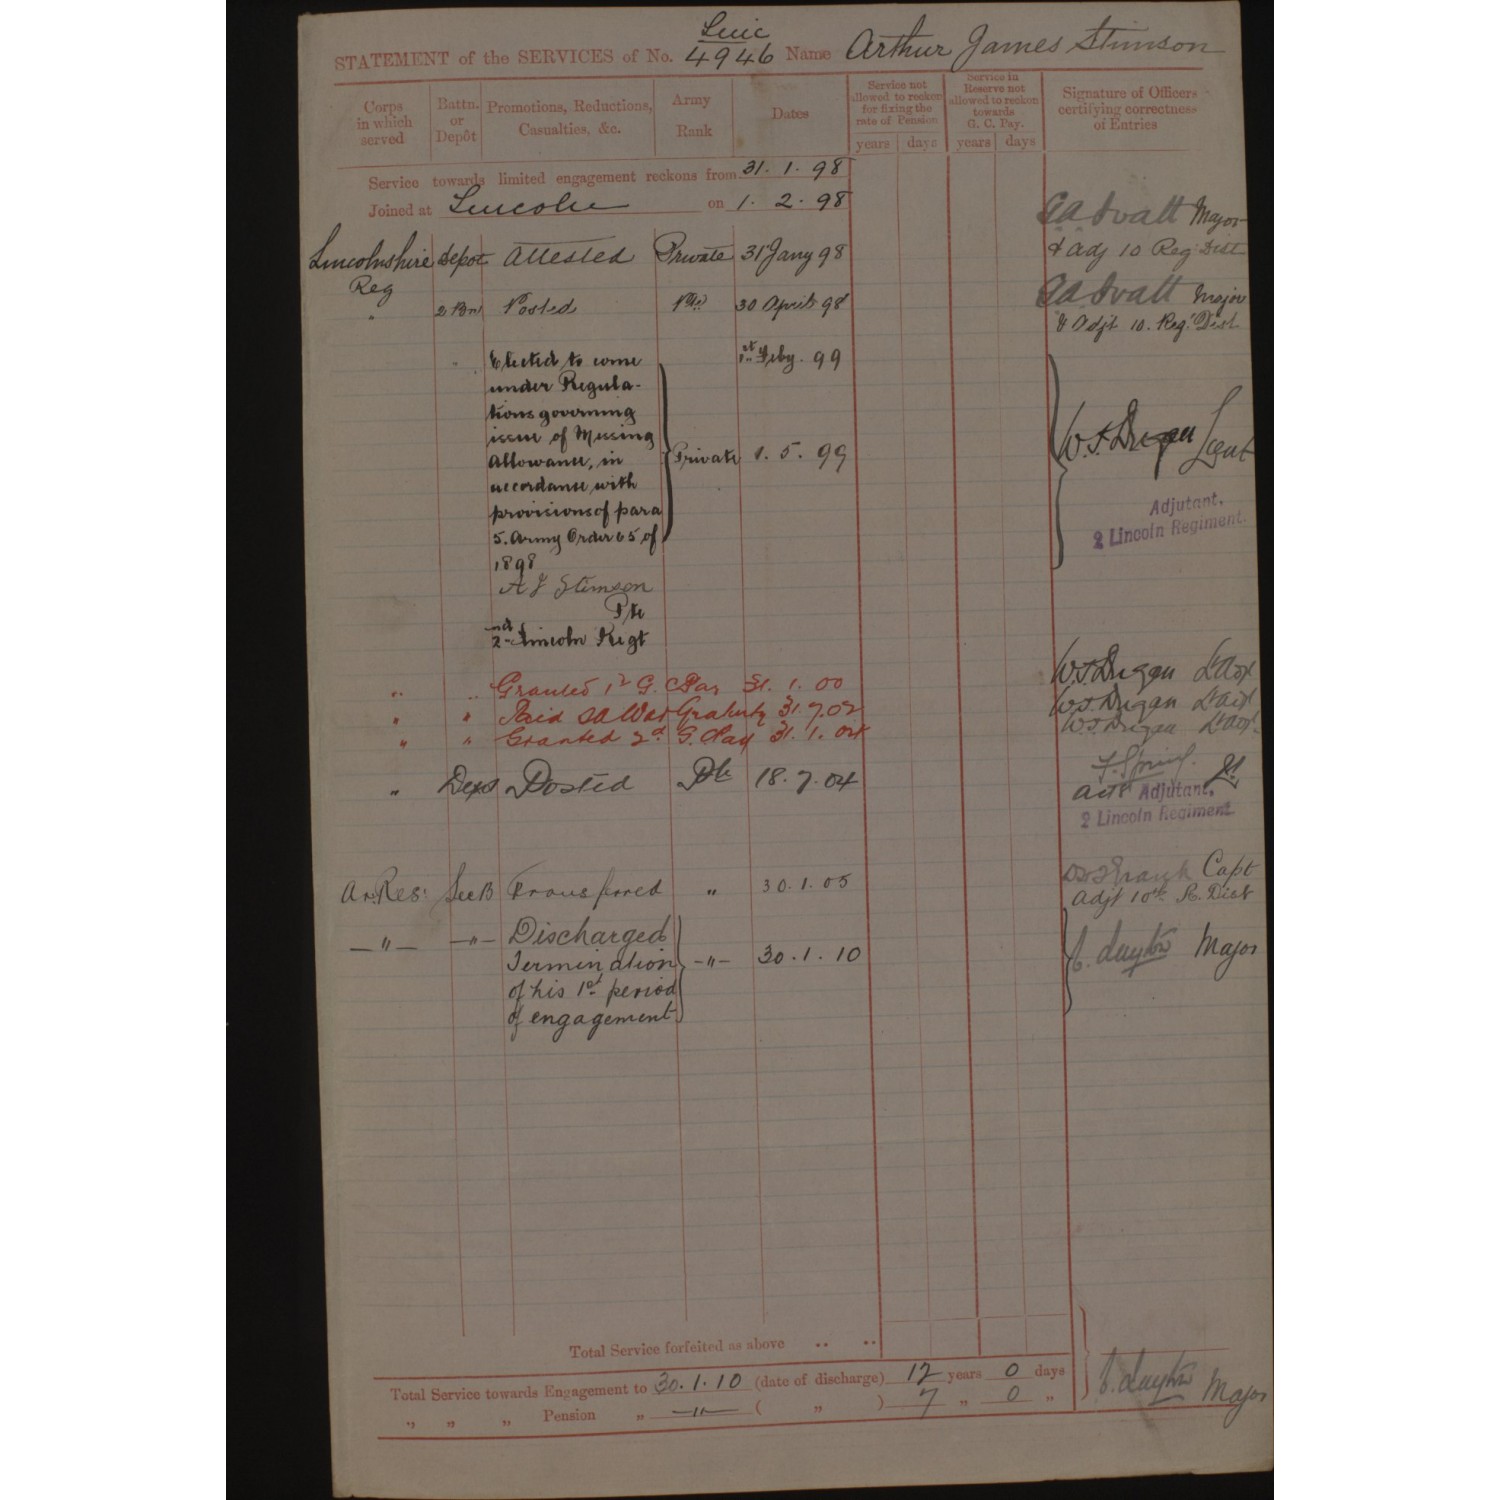 Linc
STATEMENT of the SERVICES of No. 4946 Name Arthur James Stimson
Corps in which served
Battn. or Depôt
Promotions, Reductions, Casualties, &c.
Army Rank
Dates
Service not allowed to reckon for fixing the rate of Pension
Service in Reserve not allowed to reckon towards G. C. Pay.
Signature of Officers certifying correctness of Entries
years days years days
Service towards limited engagement reckons from 31. 1. 98
Joined at Lincoln on 1. 2. 98
Major
Lincolnshire Depot Attested Private 31 Jany 98 & Adj 10 Reg Dist
Reg
" 2 Bn Posted Pte 30 April 98 Major
& Adjt 10. Reg. Dist
Elected to come 1st Feby. 99
under Regula-
tions governing
issue of Messing
Allowance, in Private 1. 5. 99 Lieut
accordance with
provisions of para Adjutant,
5. Army Order 65 of 2 Lincoln Regiment.
1898
A J Stimson
Pte
2nd Lincoln Regt
" " Granted 1st G. C Pay 31. 1. 00
" " Paid SA War Gratuity 31.7.02
" " Granted 2d G. C Pay 31. 1. 04
" Depot Posted Pte 18. 7. 04
Adjutant,
2 Lincoln Regiment.
A. Res: Sec B Transferred " 30. 1. 05 Capt
Adjt 10th R. Dist
— " — — " — Discharged
Termination — " — 30. 1. 10 Major
of his 1st period
of engagement
Total Service forfeited as above .. ..
Total Service towards Engagement to 30. 1. 10 (date of discharge) 12 years 0 days
" " " Pension " — " — ( " ) 7 " 0 "
Major